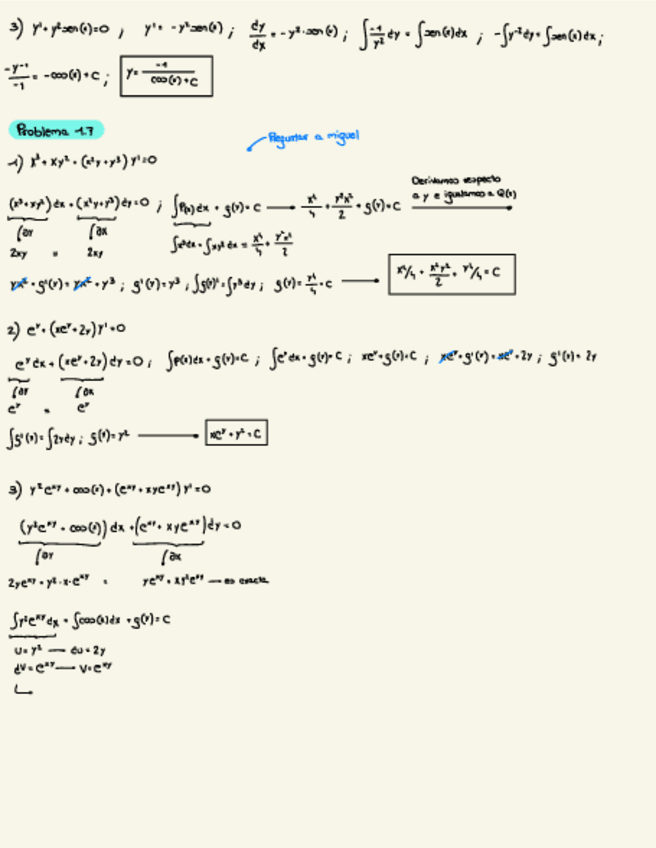 3) y'+y²sen(x)=0 ; y' = -y²sen(x) ; dy/dx = -y²·sen(x) ; ∫-1/y² dy = ∫sen(x)dx ; -∫y⁻²dy = ∫sen(x)dx ;
-y⁻¹/-1 = -cos(x)+C ; y = -1/(cos(x)+C)
Problema 1.7
Preguntar a miguel
1) x³+xy²+(x²y+y³)y'=0
Derivamos respecto
a y e igualamos a Q(x)
(x³+xy²)dx+(x²y+y³)dy=0 ; ∫P(x)dx + g(y)=C → x⁴/4 + y²x²/2 + g(y)=C →
∫∂y ∫∂x
∫x³dx+∫xy²dx = x⁴/4 + y²x²/2
2xy = 2xy
yx²+g'(y)=yx²+y³ ; g'(y)=y³ ; ∫g(y)'=∫y³dy ; g(y)=y⁴/4+C → x⁴/4 + x²y²/2 + y⁴/4 = C
2) eʸ+(xeʸ+2y)y'=0
eʸdx+(xeʸ+2y)dy=0 ; ∫P(x)dx+g(y)=C ; ∫eʸdx+g(y)=C ; xeʸ+g(y)=C ; xeʸ+g'(y)=xeʸ+2y ; g'(y)=2y
∫∂y ∫∂x
eʸ = eʸ
∫g'(y)=∫2ydy ; g(y)=y² → xeʸ+y²=C
3) y²eˣʸ+cos(x)+(eˣʸ+xyeˣʸ)y'=0
(y²eˣʸ+cos(x))dx+(eˣʸ+xyeˣʸ)dy=0
∫∂y ∫∂x
2yeˣʸ+y²·x·eˣʸ = yeˣʸ+xy²eˣʸ — es exacta
∫y²eˣʸdx+∫cos(x)dx+g(y)=C
u=y² — du=2y
dv=eˣʸ — v=eˣʸ